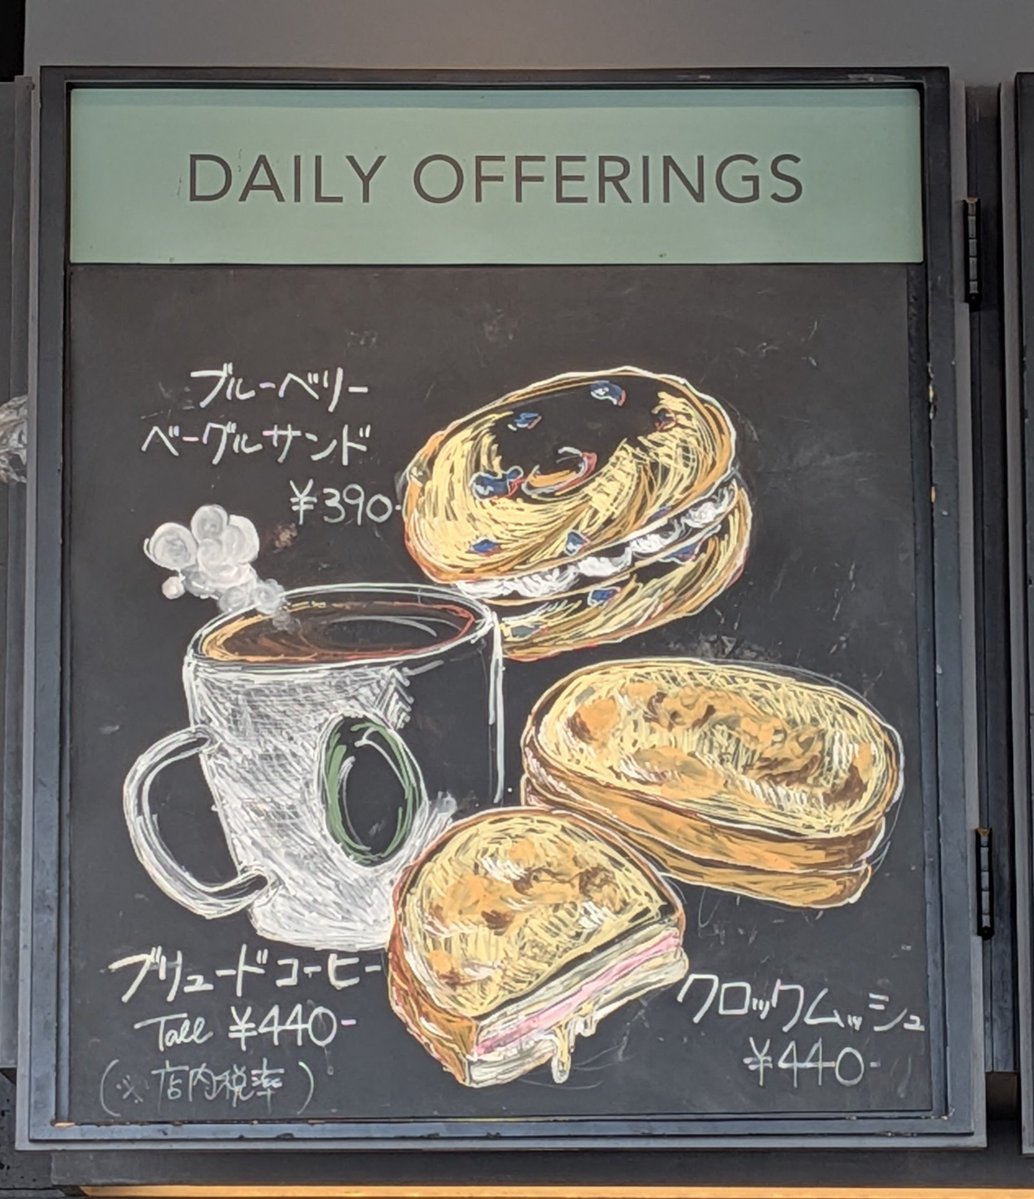 DAILY OFFERINGS
ブルーベリー
ベーグルサンド
¥390-
ブリュードコーヒー
Tall ¥440-
(※店内税率)
クロックムッシュ
¥440-